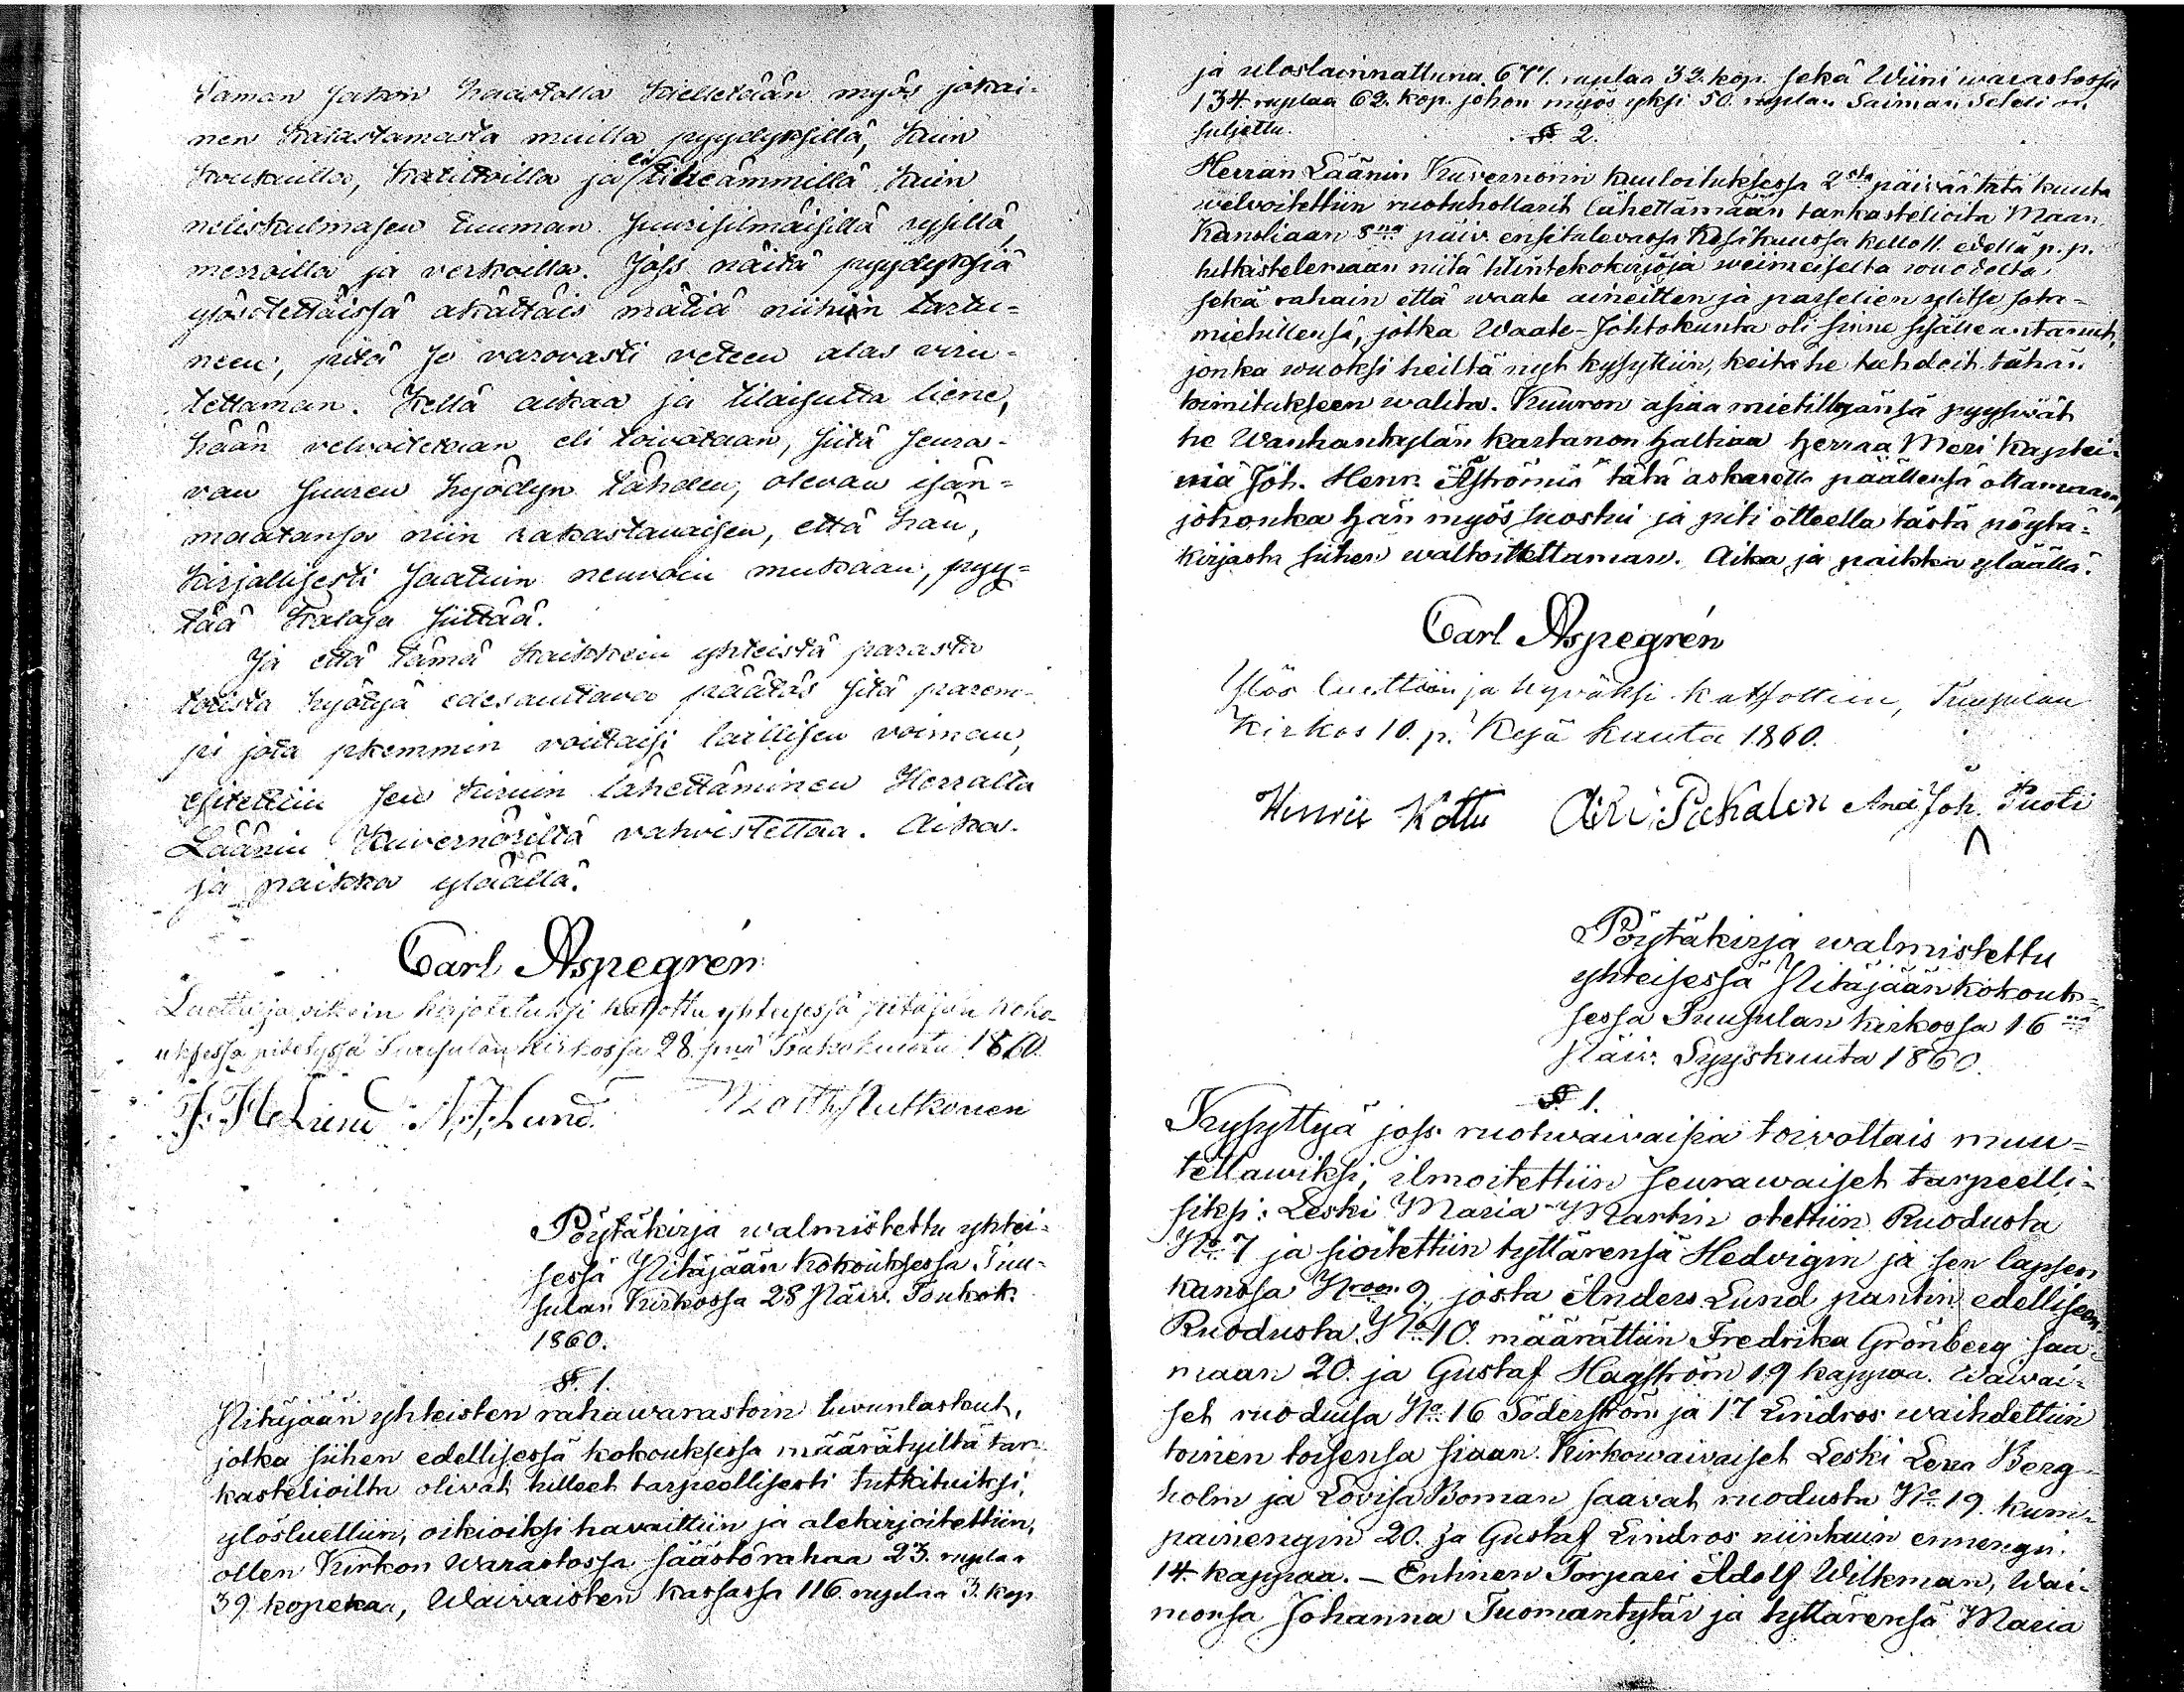 Täman jakon haastolla kielletään myös jokai-
nen kalastamasta muilla pyydyksillä, kuin
koukuilla, katitkoilla ja ei tiheämmillä kuin
neliskulmasen tuuman suurisilmäisillä rysillä,
merroilla ja verkoilla. Joss näitä pyydyksiä
ylösotettäissä akättäis mätiä niihin tartu-
neen, pitä se varovasti veteen alas viru-
tettaman. Kellä aikaa ja tilaisutta liene,
hään velvoitetaan eli toivotaan, siitä seura-
van suuren hyödyn tähden, olevan isän-
maatansa niin rakastavaisen, että hän,
kirjallisesti saatuin neuvoin mukaan, pyy-
tää kaloja siittää.
Ja että tämä kaikkein yhteistä parasta
totista hyötyä edesauttava päätös sitä parem-
pi jota pikemmin voittaisi laillisen voiman,
esitettiin sen kiruin lähettäminen Herralta
Läänin Kuvernöriltä vahvistettaa. Aika
ja paikka yläällä.
Carl Aspegrén
Luettu ja oikein kirjotetuksi katsottu yhteisessä pitäjän koko-
uksessa pidetyssä Tuusulan kirkossa 28. pnä Toukokuuta 1860.
J. H. Lund A. J. Lund Matts Nutkonen
Pöytäkirja walmistettu yhtei-
sessä Pitäjään kokouksessa Tuu-
sulan Kirkossa 28 Päiv. Toukok.
1860.
§. 1.
Pitäjään yhteisten rahawarastoin luvunlaskut,
jotka siihen edellisessä kokouksessa määrätyiltä tar-
kastelioilta olivat tulleet tarpeellisesti tutkituiksi,
ylösluettiin, oikioiksi havaittiin ja alekirjoitettiin,
ollen Kirkon Warastossa säästörahaa 23. ruplaa
39 kopekaa, Waivaisten kassassa 116 ruplaa 3. kop
ja uloslainnattuna 677. ruplaa 32. kop. sekä Wiini warastossa
134 ruplaa 62. kop. johon myös yksi 50. ruplan Saiman Seteli on
suljettu.
§. 2.
Herran Läänin Kuvernörin kuuloituksessa 2sta päivää tätä kuuta
welvoitettiin ruotuhollarit lähettämään tarkastelioita Maan
Kansliaan 8na päiv. ensitulevassa Kesäkuussa kello 11. edellä p. p.
tutkistelemaan niitä tilintekokirjoja weimeiseltä wuodelta
sekä rahain että waate aineitten ja parselien ylitse sota-
miehillensä, jotka Waate-Johtokunta oli sinne sisälleantanut,
jonka wuoksi heiltä nyt kysyttiin, keitä he tahdoit tähän
toimitukseen walita. Kuuron asiaa mietittyänsä pyysivät
he Wanhankylän kartanon haltiaa herraa Meri Kaptei-
niä Joh. Henr. Åströmiä tätä askaretta päällensä ottamaan,
johonka hän myös suostui ja piti otteella tästä pöytä-
kirjasta siihen waltoitettaman. Aika ja paikka yläällä.
Carl Aspegrén
Ylös luettiin ja hyväksi katsottiin, Tuusulan
Kirkos 10. p. Kesä kuuta 1860.
Henric Kottu Joh. Tuoti
Pöytäkirja walmistettu
yhteisessä Pitäjään kokouk-
sessa Tuusulan kirkossa 16na
Päiv. Syyskuuta 1860.
§. 1.
Kysyttyä joss ruotuvaivaisia toivottais muu-
tettawiksi, ilmoitettiin seurawaiset tarpeelli-
siksi: Leski Maria Martin otettiin Ruodusta
No. 7 ja sioitettiin tyttärensä Hedvigin ja sen lapsen
kanssa Nroon 9, josta Anders Lund pantiin edelliseen.
Ruodusta No. 10 määrättiin Fredrika Grönberg saa-
maan 20. ja Gustaf Hagström 19 kappaa. Waivai-
set ruoduisa No. 16 Söderström ja 17 Lindros waihdettiin
toinen toisensa siaan. Kirkowaivaiset Leski Lena Berg-
holm ja Lovisa Boman saavat ruodusta No. 19. kum-
painengin 20. ja Gustaf Lindros niinkuin ennengi.
14. kappaa. — Entinen Torpari Adolf Wilkman, Wai-
monsa Johanna Tuomantytär ja tyttärensä Maria